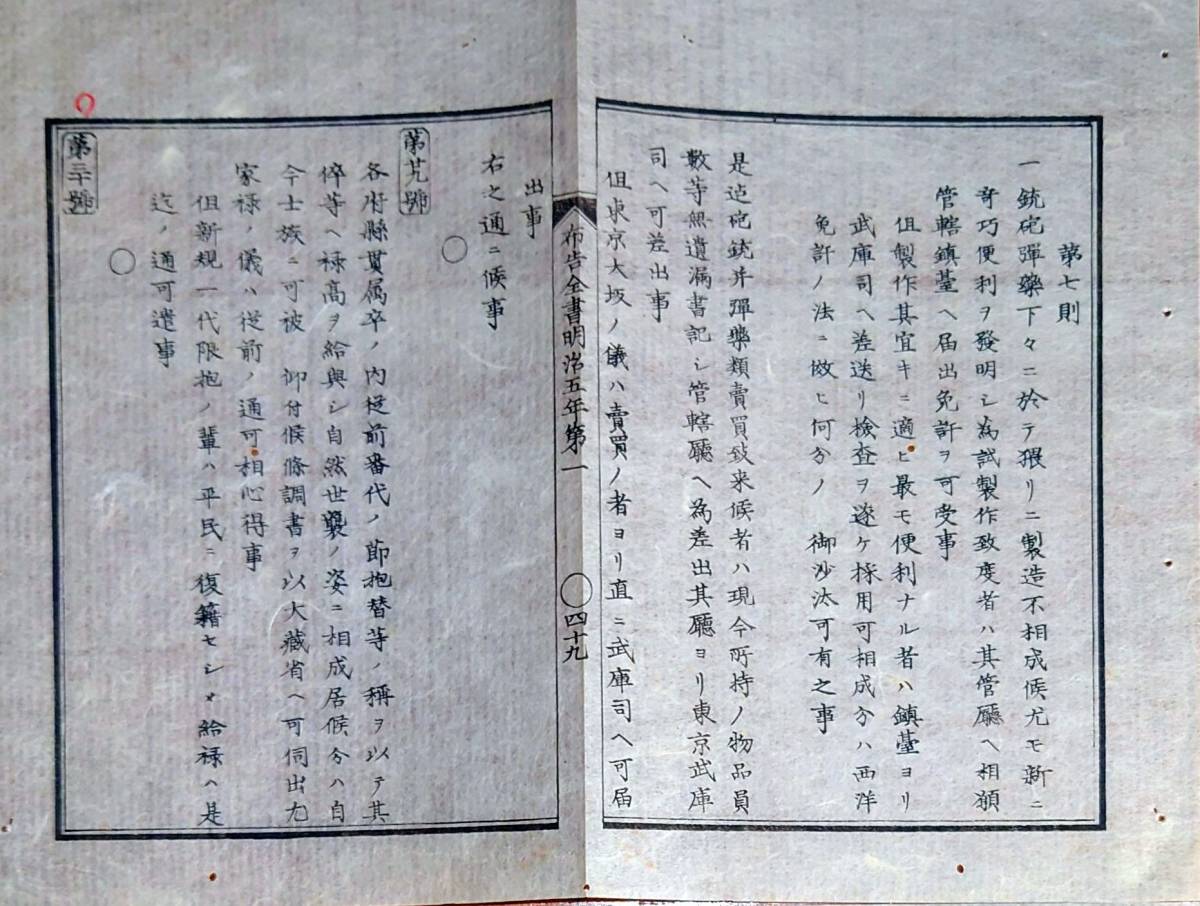 第七則
一銃砲彈藥下々ニ於テ猥リニ製造不相成候尤モ新ニ
奇巧便利ヲ發明シ為試製作致度者ハ其管廳ヘ相願
管轄鎮臺ヘ届出免許ヲ可受事
但製作其宜キニ適ヒ最モ便利ナル者ハ鎮臺ヨリ
武庫司ヘ差送リ檢査ヲ遂ケ採用可相成分ハ西洋
免許ノ法ニ倣ヒ何分ノ　御沙汰可有之事
是迠砲銃并彈藥類賣買致来候者ハ現今所持ノ物品員
數等無遺漏書記シ管轄廳ヘ為差出其廳ヨリ東京武庫
司ヘ可差出事
但東京大坂ノ儀ハ賣買ノ者ヨリ直ニ武庫司ヘ可届
布告全書明治五年第一　〇四十九
出事
右之通ニ候事
〇
第廿九號
各府縣貫属卒ノ内従前番代ノ節抱替等ノ稱ヲ以テ其
倅等ヘ禄高ヲ給與シ自然世襲ノ姿ニ相成居候分ハ自
今士族ニ可被　仰付候條調書ヲ以大藏省ヘ可伺出尤
家禄ノ儀ハ従前ノ通可相心得事
但新規一代限抱ノ輩ハ平民ニ復籍セシメ給禄ハ是
迄ノ通可遣事
〇
第三十號